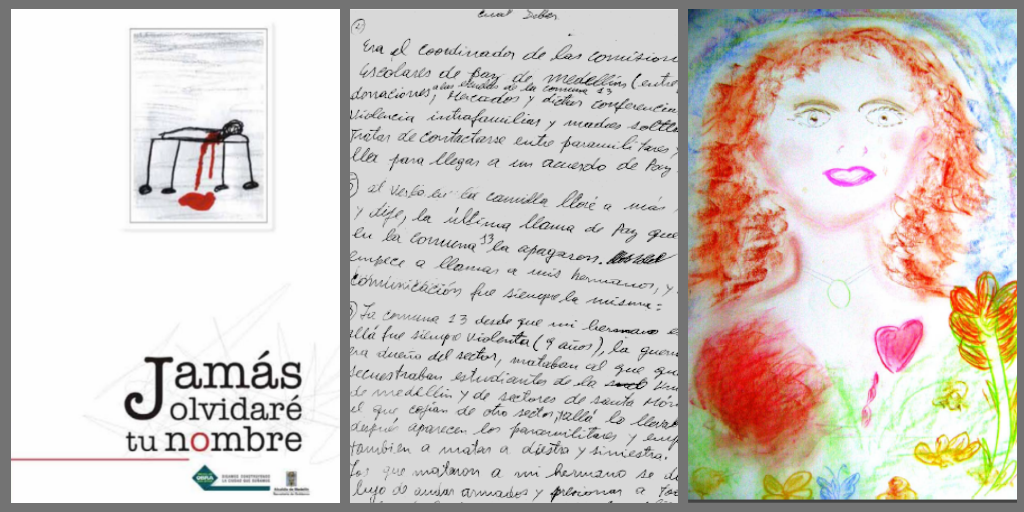 Jamás
olvidaré
tu nombre
Alcaldía de Medellín
(2)
Era el coordinador de las comision
Escolares de paz de medellín (entre
a las viudas de la comuna 13
donaciones, Mercados y dictar conferencia
violencia intrafamiliar y madres soltte
Tratar de contactarse entre paramilitares,
lla para llegar a un acuerdo de Paz
al verlo en la camilla lloré a más
y dije, la última llama de Paz que
en la comuna 13 la apagaron.
empece a llamar a mis hermanos, y
comunicación fue siempre la misma:
La comuna 13 desde que mi hermano e
allá fue siempre violenta (9 años), la guerr
era dueño del sector, mataban al que qu
secuestraban estudiantes de la
de medellín y de sectores de santa Món
el que cogian de otro sector, allá lo lleva
después aparecen los paramilitares y emp
también a matar a diestra y siniestra.
Los que mataron a mi hermano se d
lujo de andar armados y presionar a to